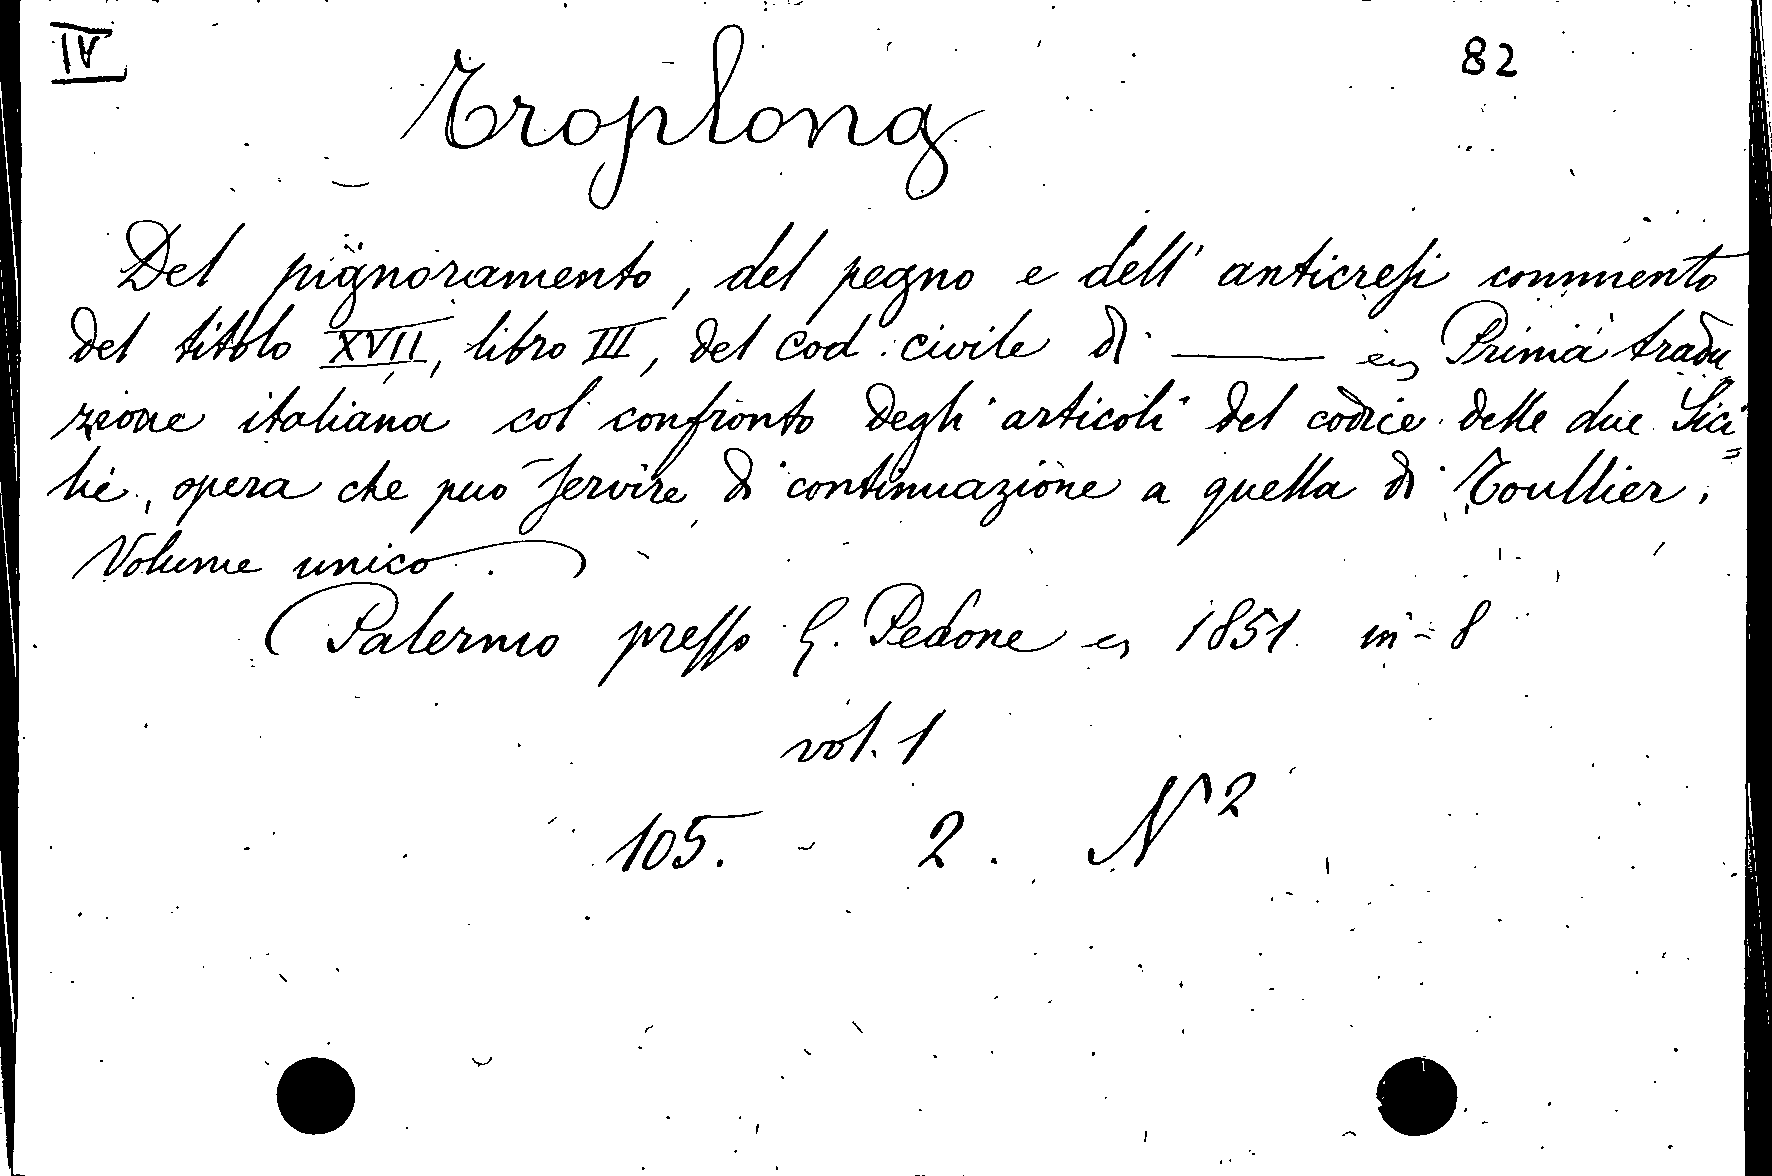 IV
82
Troplong
Del pignoramento, del pegno e dell' anticresi commento
del titolo XVII, libro III, del Cod. civile di ——— Prima tradu
zione italiana col confronto degli articoli del codice delle due Sici=
lie, opera che può servire di continuazione a quella di Toullier.
Volume unico.
Palermo presso G. Pedone 1851 in-8
vol. 1
105. - 2. N 2